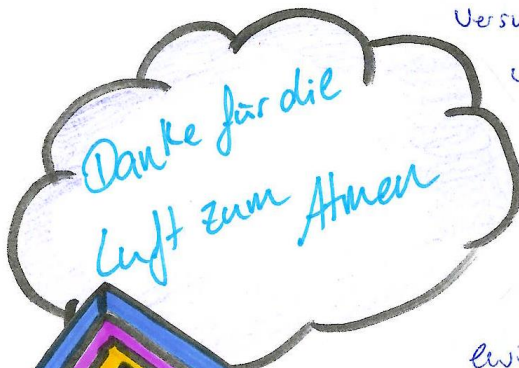 Danke für die
Luft zum Atmen